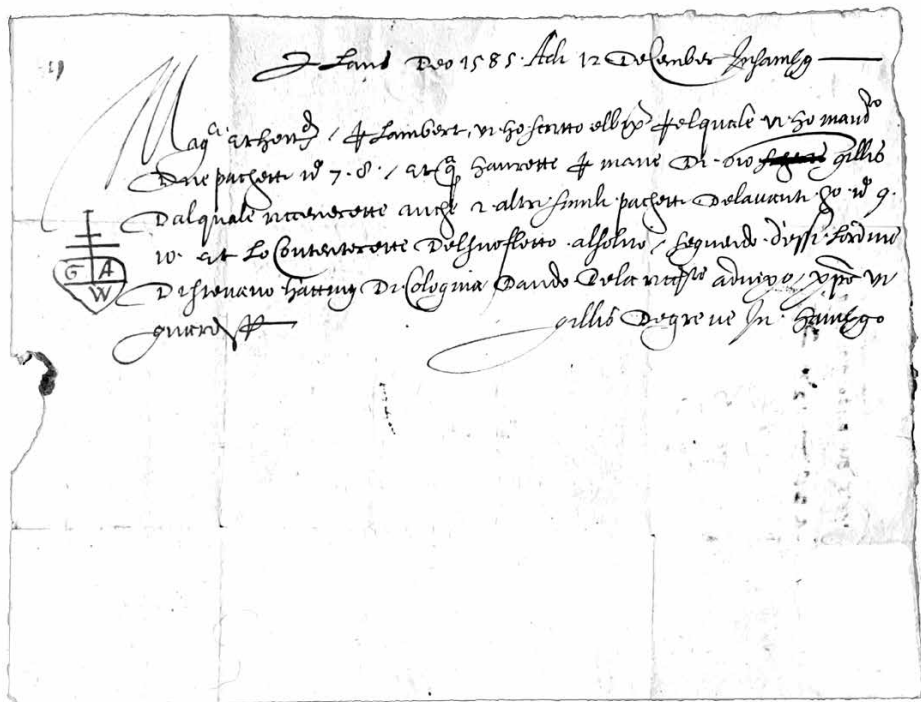 Laus Deo 1585 Adi 12 Desember In hambg
Magci. et hondi / Lambert, vi ho scritto el bixo. pelquale vi ho mando
Due pachetti no 7. 8. / Et haverette p mane Di Gillis
Dalquale riceverette anche 2 altri simili pachetti Delavanti no 9.
10. et lo Contenterette Del suo fletto alsolito / seguendo d'essi L'ordine
Di stevano hatting Di Colognia Dando Dela ricta adviso / xpo vi
guardi
gillis Degreve In hambgo
G A
W